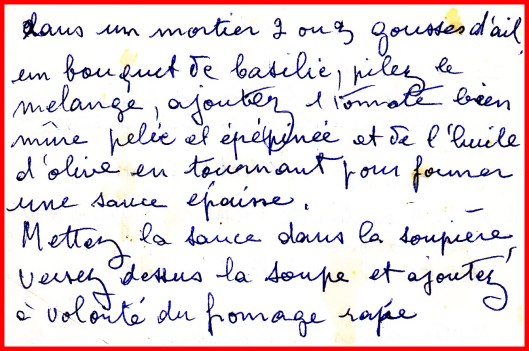 dans un mortier 2 ou 3 gousses d'ail
un bouquet de basilic, pilez le
mélange, ajoutez 1 tomate bien
mûre pelée et épépinée et de l'huile
d'olive en tournant pour former
une sauce épaisse.
Mettez la sauce dans la soupière
versez dessus la soupe et ajoutez
à volonté du fromage rapé